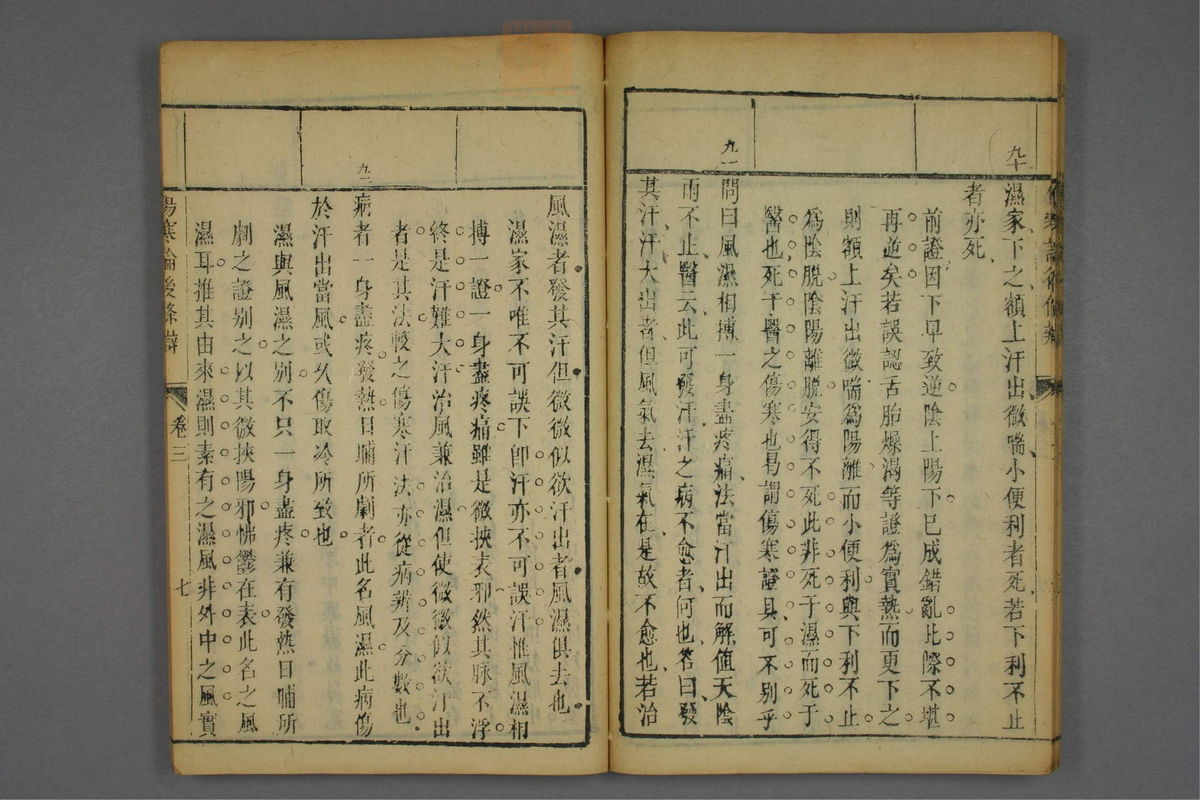 九十
濕家下之額上汗出微喘小便利者死若下利不止
者亦死
前證因下早致逆陰上陽下已成錯亂此際不堪
再逆矣若誤認舌胎燥渴等證為實熱而更下之
則額上汗出微喘為陽離而小便利與下利不止
為陰脫陰陽離脫安得不死此非死于濕而死于
醫也死于醫之傷寒也曷謂傷寒證具可不別乎
九一
問曰風濕相搏一身盡疼痛法當汗出而解值天陰
雨不止醫云此可發汗汗之病不愈者何也答曰發
其汗汗大出者但風氣去濕氣在是故不愈也若治
風濕者發其汗但微微似欲汗出者風濕俱去也
濕家不唯不可誤下即汗亦不可誤汗惟風濕相
搏一證一身盡疼痛雖是微挾表邪然其脉不浮
終是汗難大汗治風兼治濕但使微微似欲汗出
者是其法較之傷寒汗法亦從病辨及分數也
九二
病者一身盡疼發熱日晡所劇者此名風濕此病傷
於汗出當風或久傷取冷所致也
濕與風濕之別不只一身盡疼兼有發熱日晡所
劇之證別之以其微挾陽邪怫鬱在表此名之風
濕耳推其由來濕則素有之濕風非外中之風實
傷寒論後條辯
卷三
七